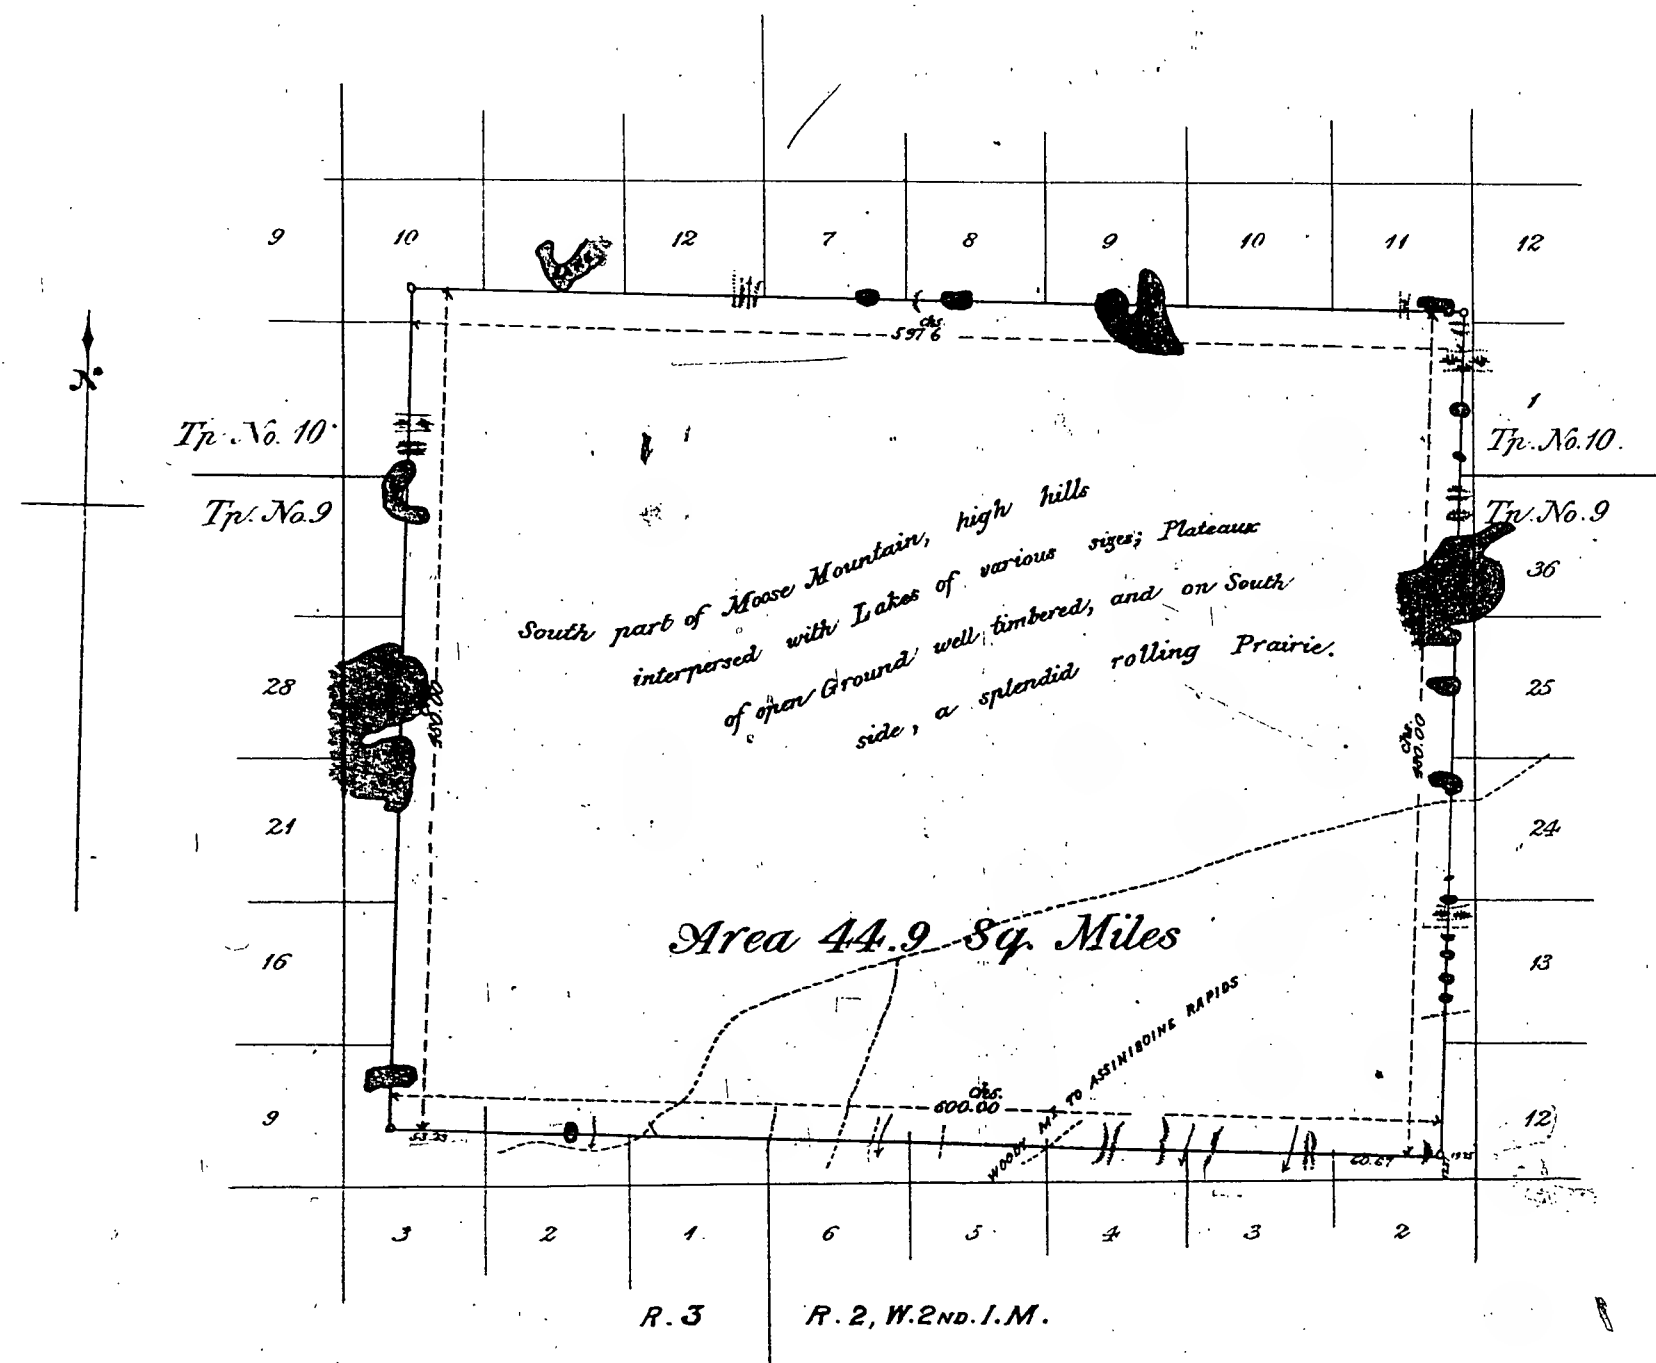 9 10 12 7 8 9 10 11 12
LAKE
chs.
597.6
N.
1
Tp. No. 10.
Tp. No. 10.
Tp. No. 9
Tp. No. 9
36
South part of Moose Mountain, high hills
interpersed with Lakes of various sizes; Plateaux
of open Ground well timbered, and on South
side, a splendid rolling Prairie.
28
25
480.00
Chs.
480.00
21
24
Area 44.9 Sq. Miles
16
13
WOODY MT TO ASSINIBOINE RAPIDS
Chs.
600.00
9
12
53.23
60.67
3 2 1 6 5 4 3 2
R. 3 R. 2, W. 2ND. I. M.